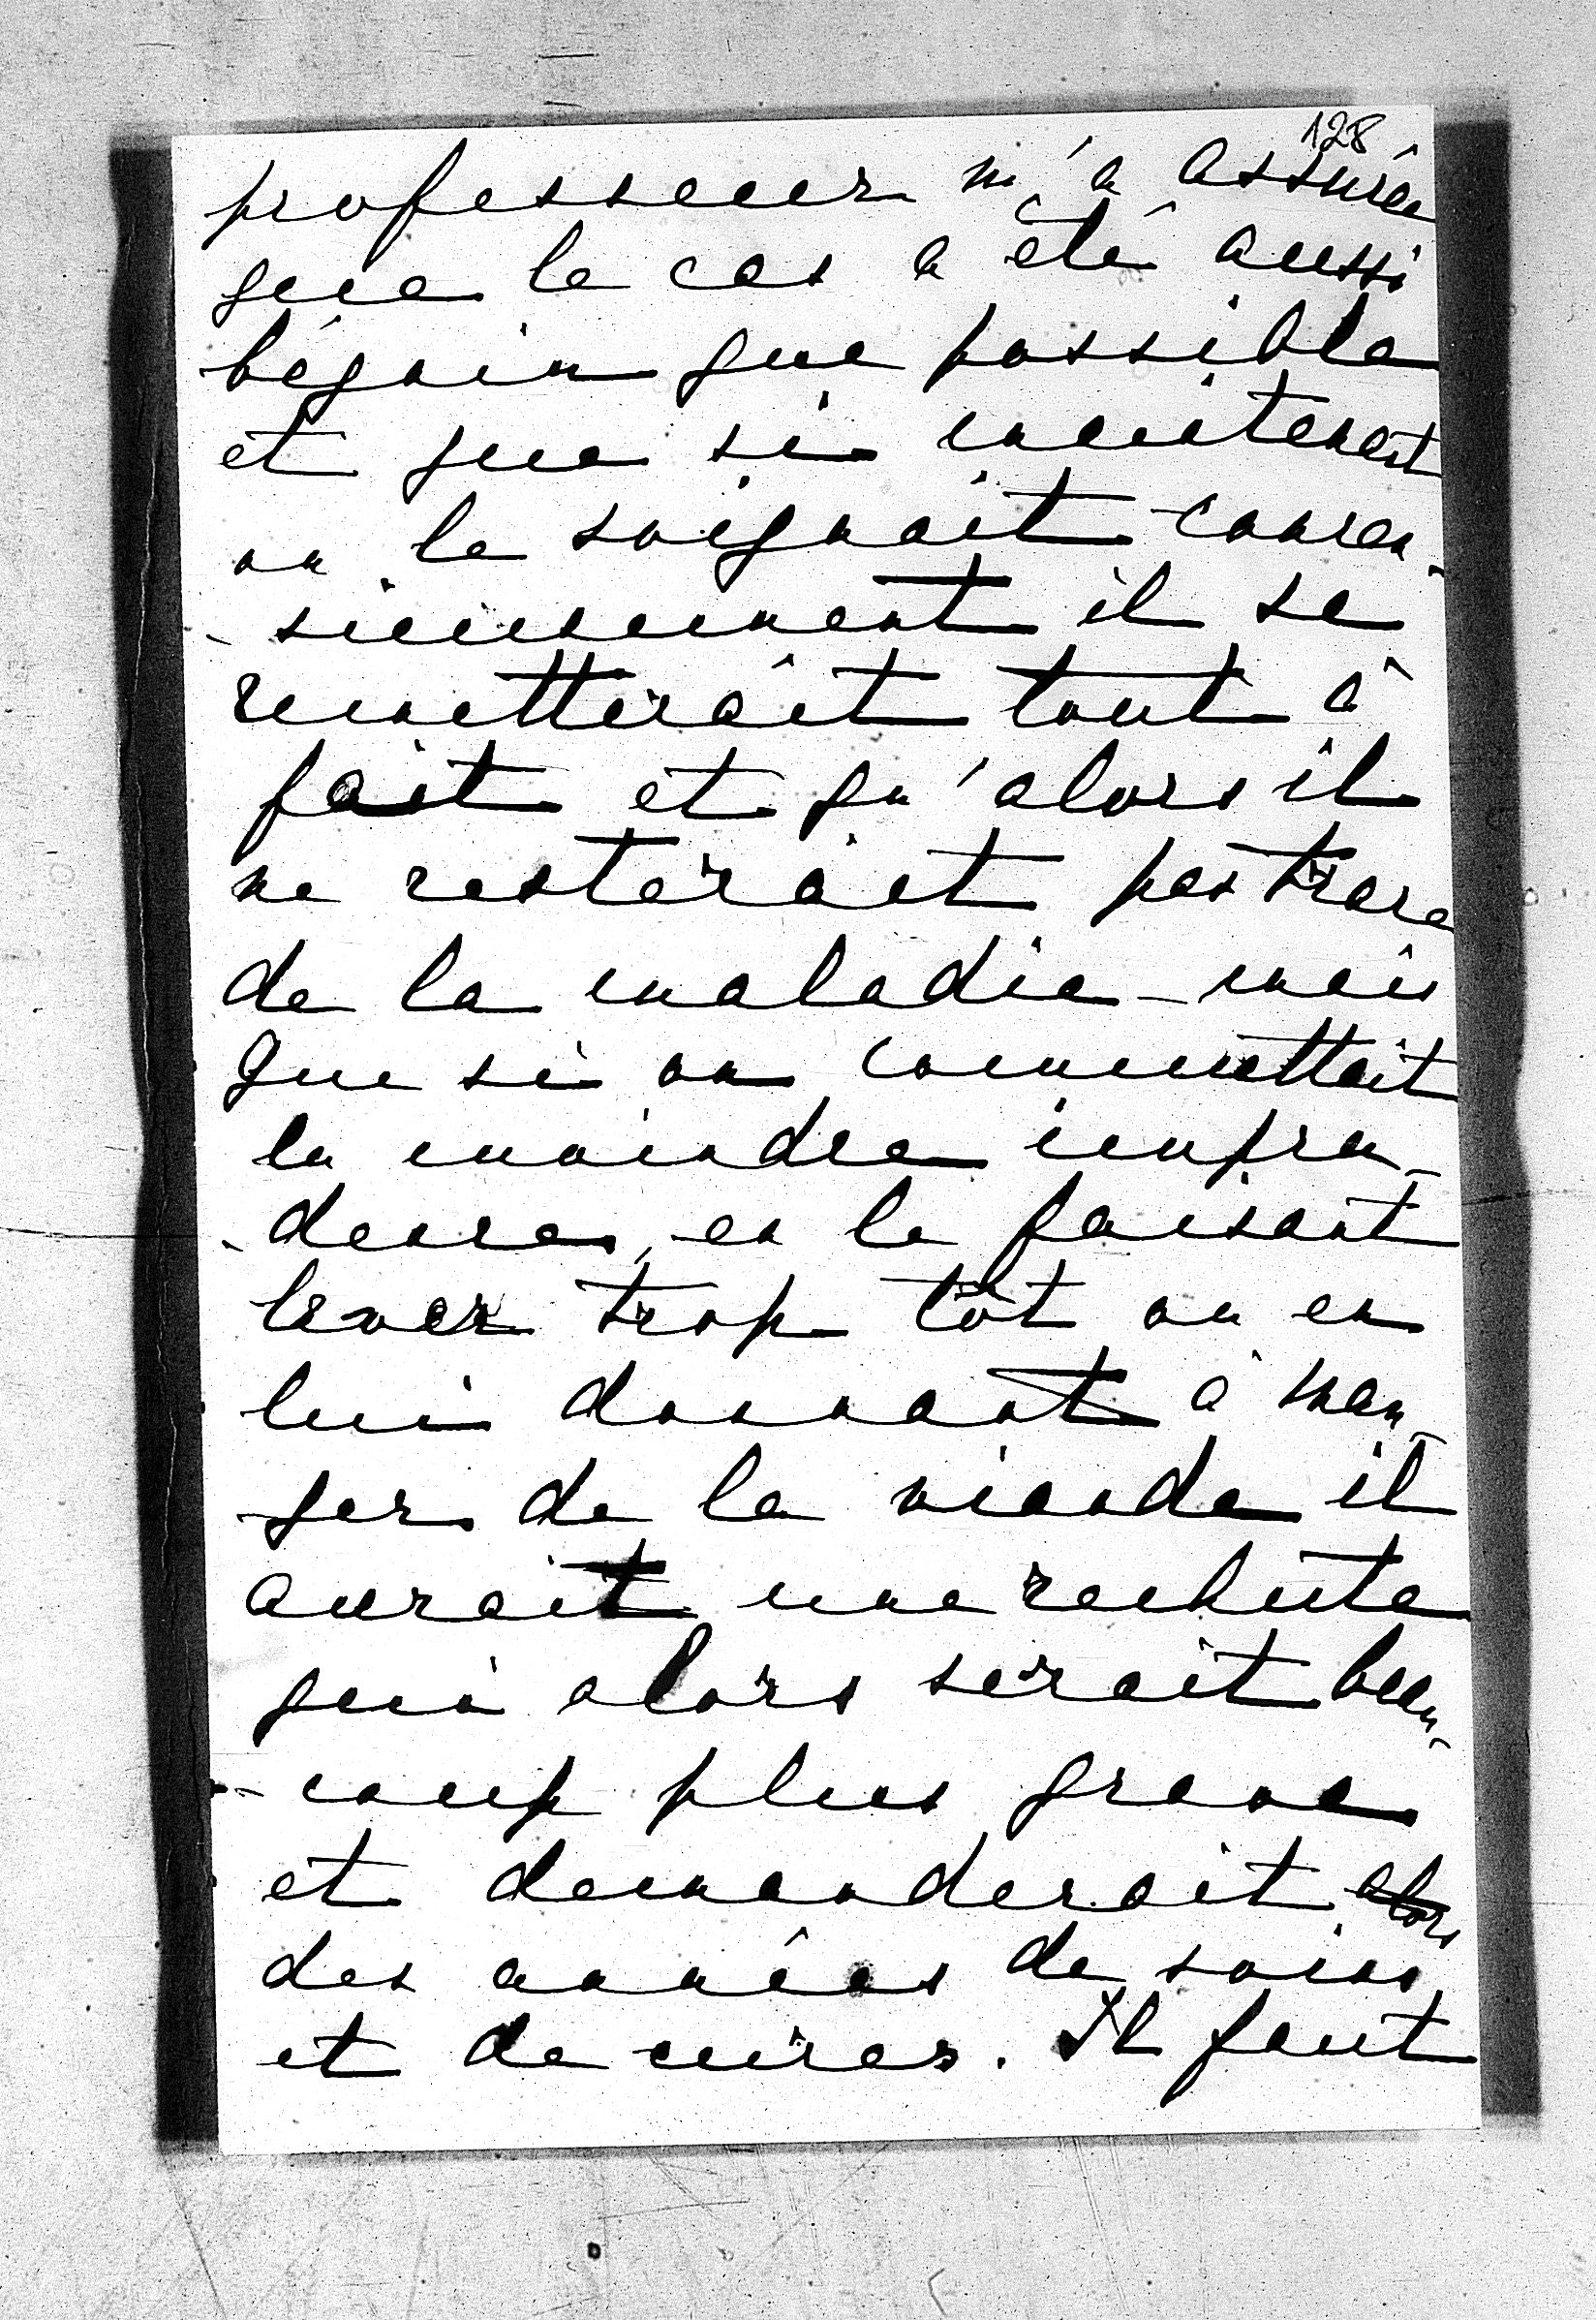 128
professeur m'a assurée
que le cas a été aussi
bégnin que possible
et que si maintenant
on le soignait conscen-
-sieusement il se
remetterait tout à
fait et qu'alors il
ne resterait pas trace
de la maladie - mais
que si on commettait
la moindre impru-
-dence, en le faisant
lever trop tôt ou en
lui donnant à man-
ger de la viande il
aurait une rechute
qui alors serait beau-
-coup plus grave
et demanderait alors
des années de soins
et de cures. Il faut